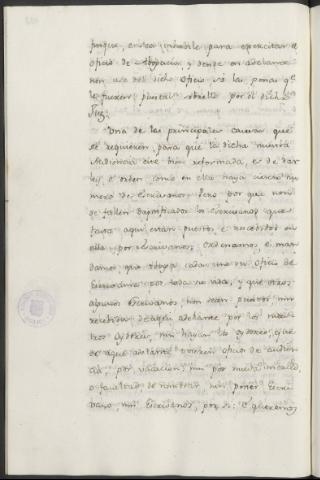 porque, en sea inhabile para exercitar el
oficio de Abogacia, y dende en adelante
non use del dicho Oficio, só las penas qe
le fueren puestas sobrello por el dicho
Juez.
Una de las principales causas que
se requieren, para que la dicha nuestra
Audiencia este bien reformada, es de dar
ley, é orden como en ella haya cierto nu
mero de Escrivanos. Pero por que non
se fallen dapnificados los Escrivanos que
fasta aqui están puestos é recebidos en
ella por Escrivanos, Ordenamos, é man
damos, que tenga cada uno su Oficio de
Escrivania por toda su vida, y que otros
algunos Escrivanos non sean puestos nin
recebidos de aqui adelante por los nues
tros Oydores, nin hayan los oydores, que
de aqui adelante tovieren oficio de audien
cia, por vacacion, nin por nueva
o facultad de nombrar nin poner Escri
vano, nin Escrivanos, por si: É queremos